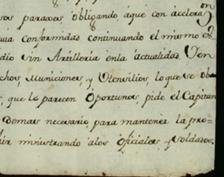 paraxes, obligando aque con aceleraon
conformidas continuando el mismo
dio sin Artilleria enla actualidad
chos, Municiones, y Utencilios, lo que se
que le parecen Oportunos, pide el Capitan
necesario para mantener la
ministrando alos Oficiales y soldados